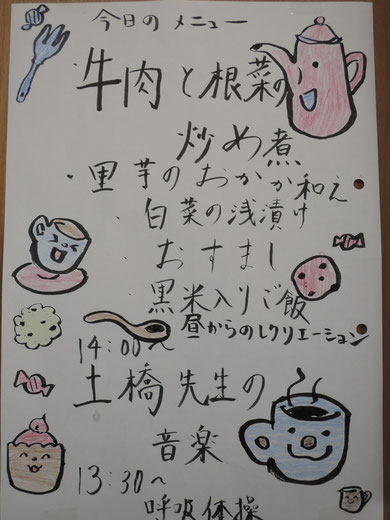 今日のメニュー
牛肉と根菜の
炒め煮
・里芋のおかか和え
・白菜の浅漬け
・おすまし
・黒米入りご飯
昼からのレクリエーション
14:00〜
土橋先生の
音楽
13:30〜
呼吸体操